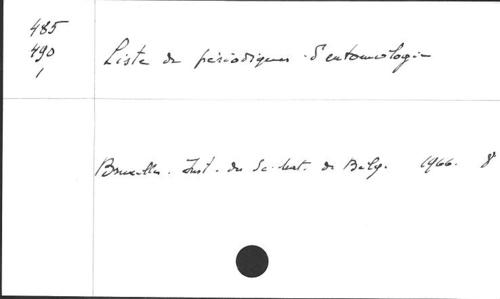 485
490
1
Liste de périodiques d'entomologie
Bruxelles. Inst. des Sc. nat. de Belg. 1966. 8°